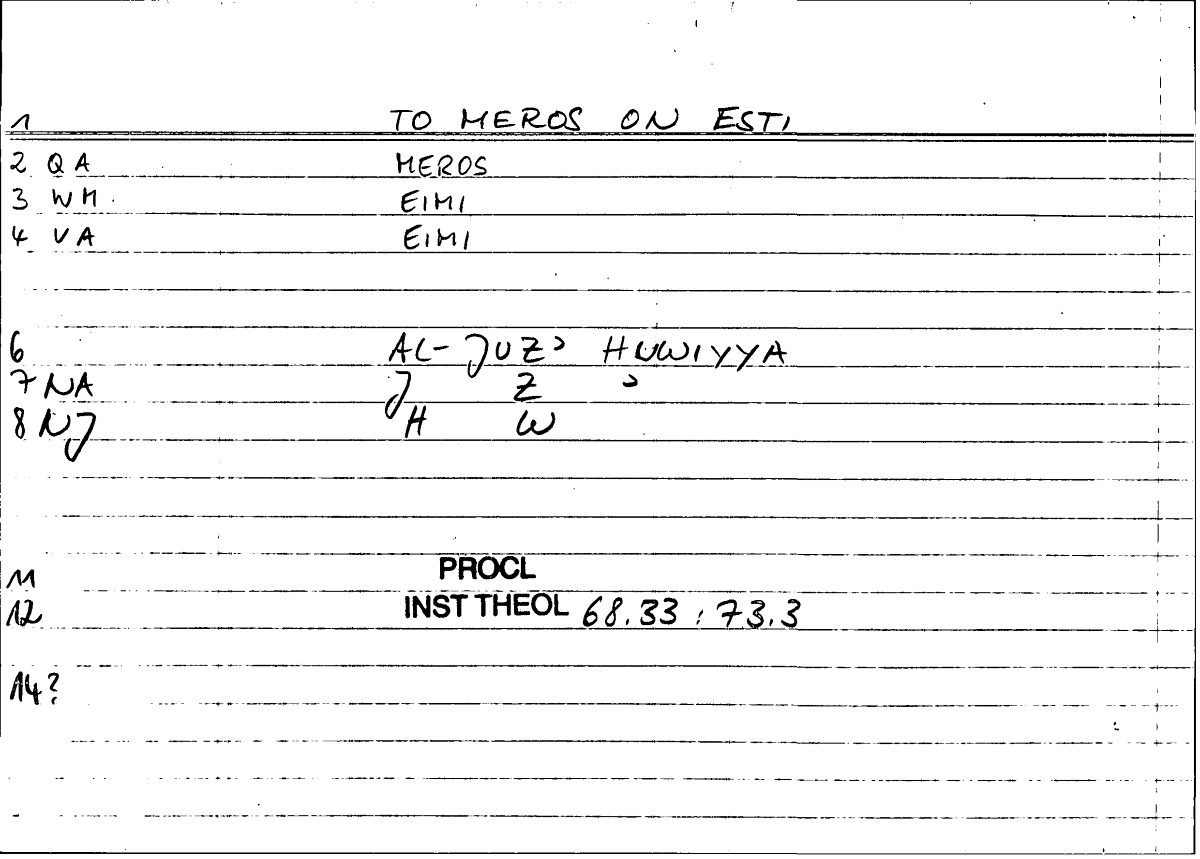 1 TO MEROS ON ESTI
2 QA MEROS
3 WM EIMI
4 VA EIMI
6 AL-JUZʾ HUWIYYA
7 NA J Z ʾ
8 NJ H W
11 PROCL
12 INST THEOL 68.33 : 73.3
14?